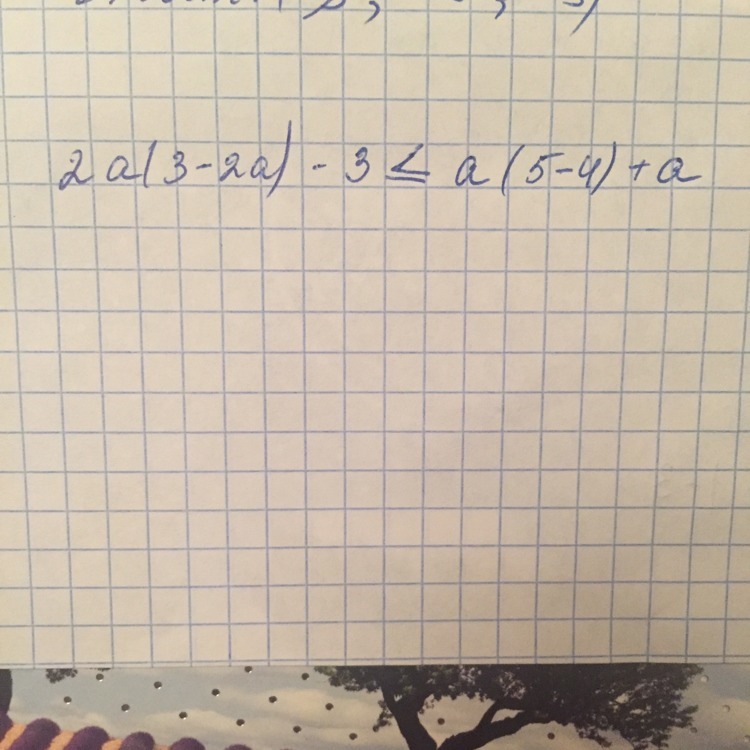 2a(3-2a) - 3 ≤ a(5-4) + a